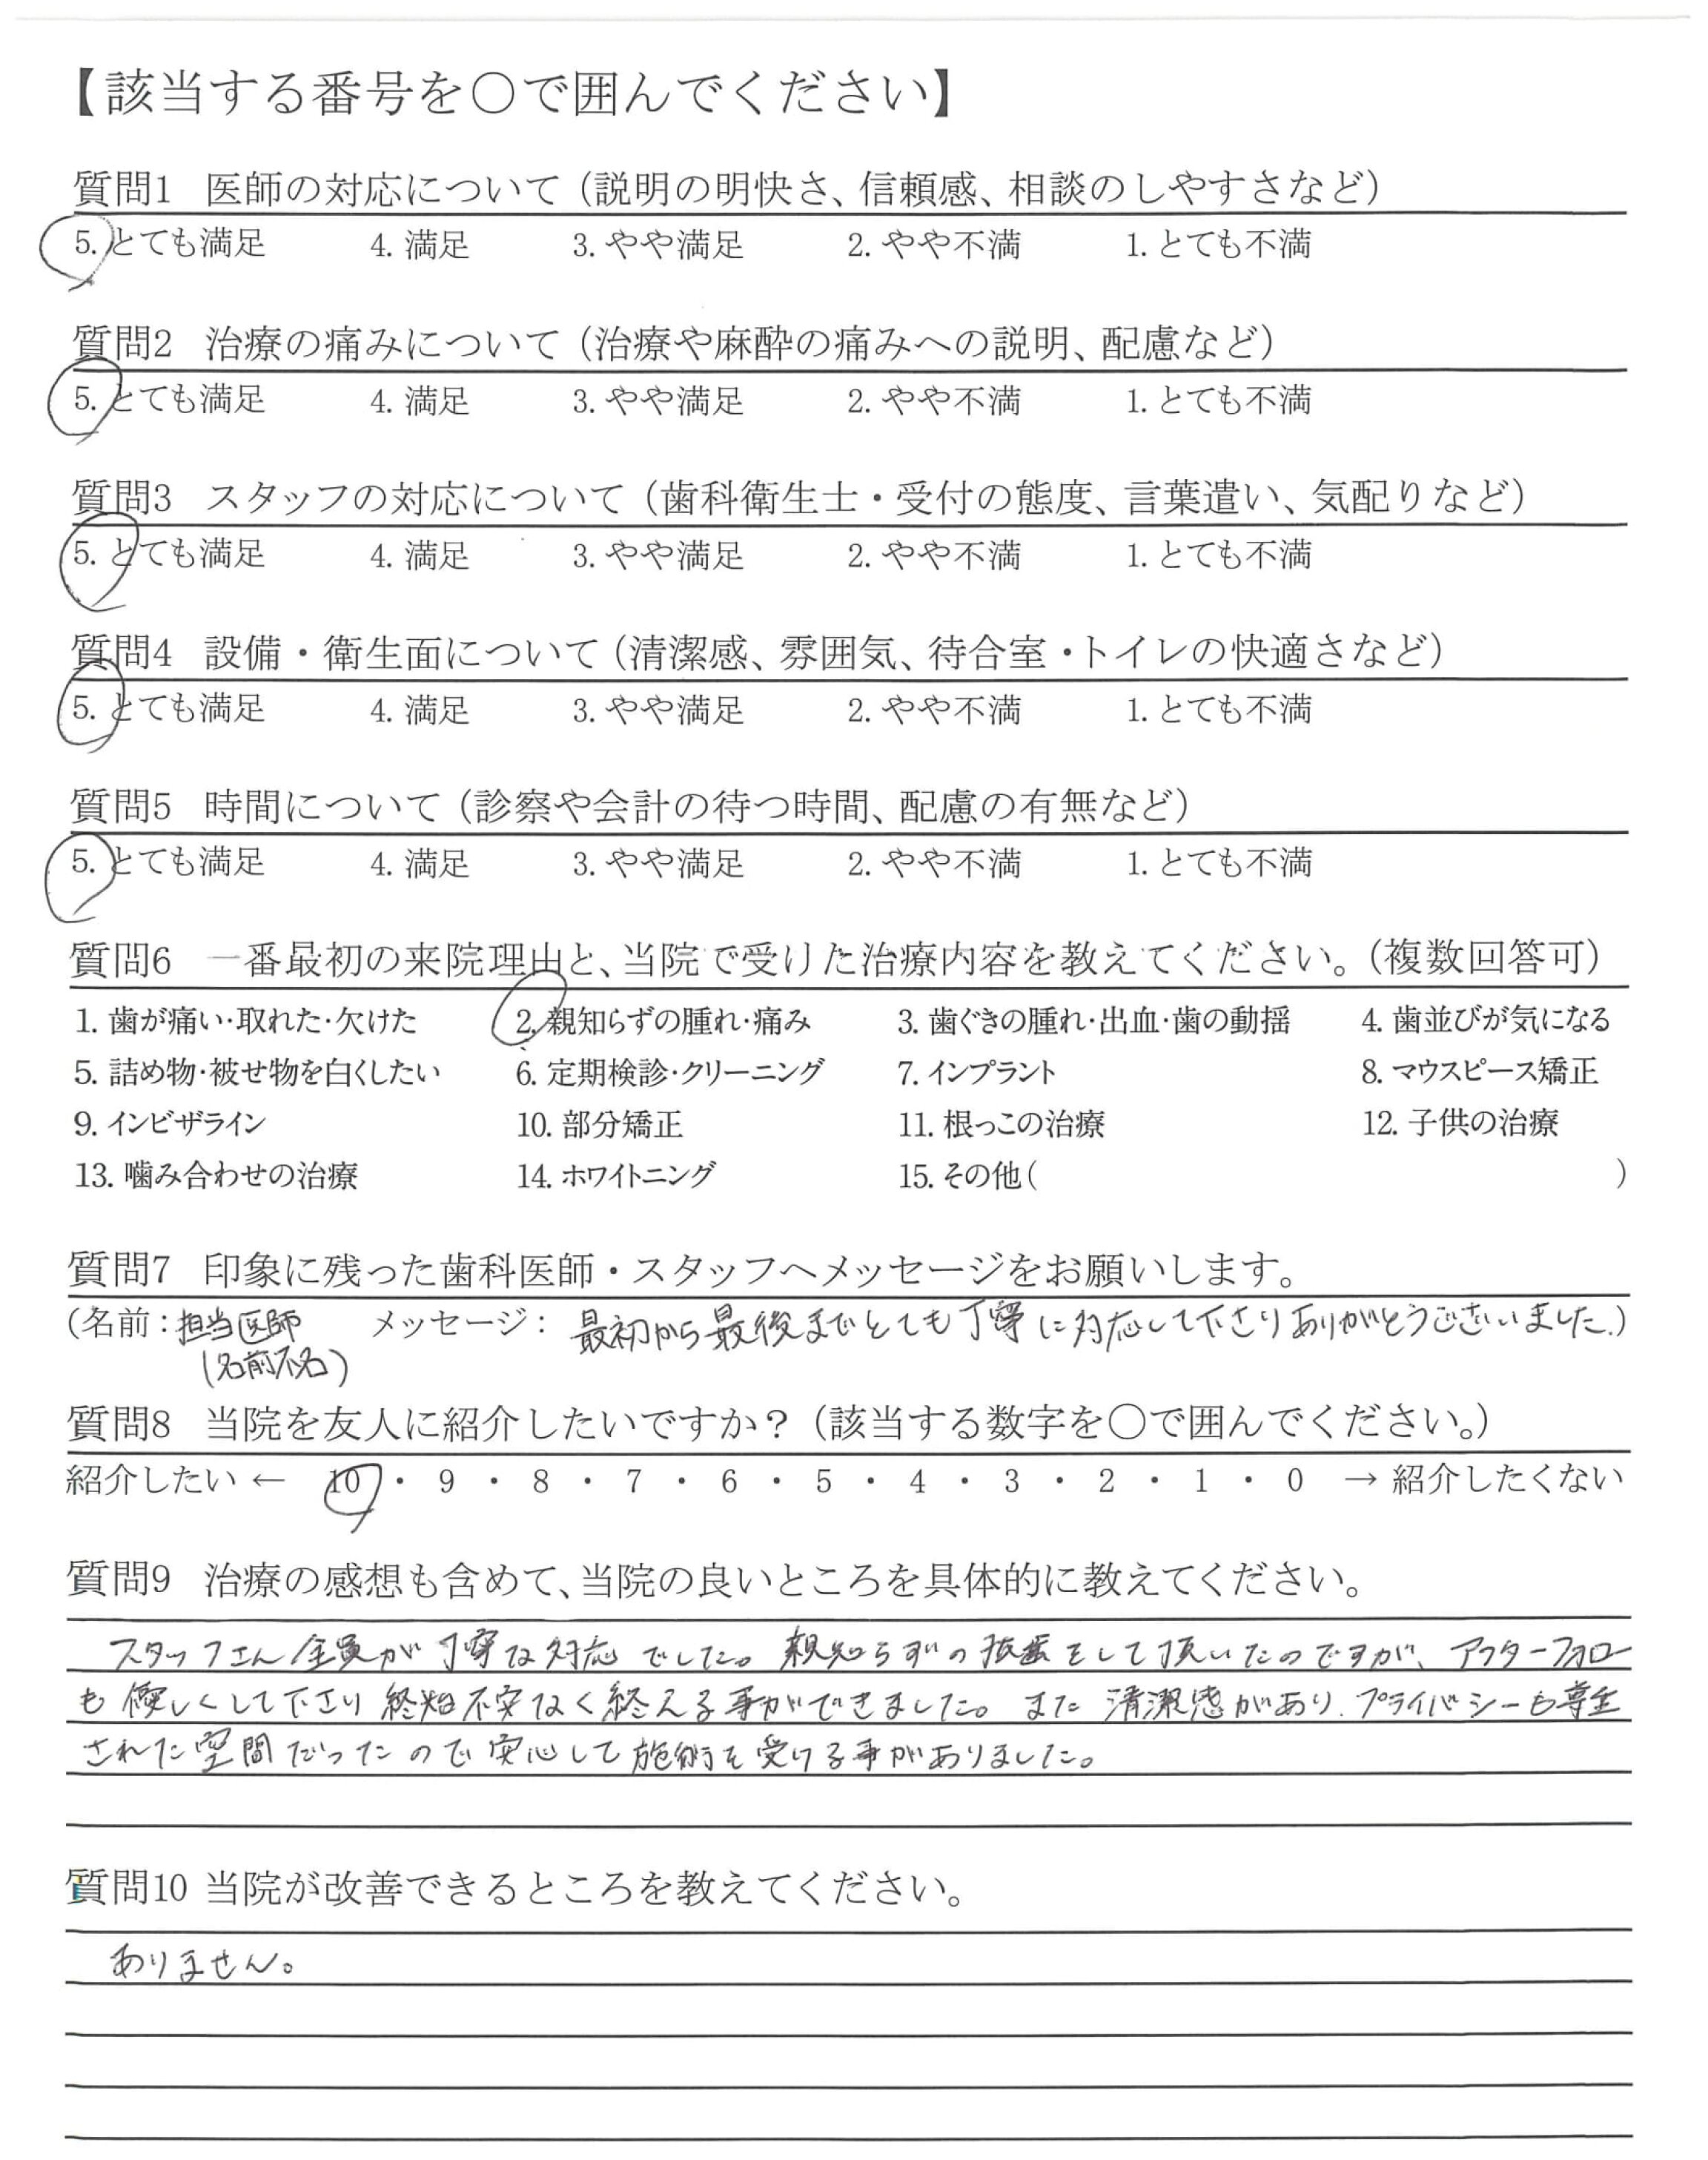 【該当する番号を〇で囲んでください】
質問1 医師の対応について（説明の明快さ、信頼感、相談のしやすさなど）
5. とても満足 4. 満足 3. やや満足 2. やや不満 1. とても不満
質問2 治療の痛みについて（治療や麻酔の痛みへの説明、配慮など）
5. とても満足 4. 満足 3. やや満足 2. やや不満 1. とても不満
質問3 スタッフの対応について（歯科衛生士・受付の態度、言葉遣い、気配りなど）
5. とても満足 4. 満足 3. やや満足 2. やや不満 1. とても不満
質問4 設備・衛生面について（清潔感、雰囲気、待合室・トイレの快適さなど）
5. とても満足 4. 満足 3. やや満足 2. やや不満 1. とても不満
質問5 時間について（診察や会計の待つ時間、配慮の有無など）
5. とても満足 4. 満足 3. やや満足 2. やや不満 1. とても不満
質問6 一番最初の来院理由と、当院で受けた治療内容を教えてください。（複数回答可）
1. 歯が痛い･取れた･欠けた 2. 親知らずの腫れ･痛み 3. 歯ぐきの腫れ･出血･歯の動揺 4. 歯並びが気になる
5. 詰め物･被せ物を白くしたい 6. 定期検診･クリーニング 7. インプラント 8. マウスピース矯正
9. インビザライン 10. 部分矯正 11. 根っこの治療 12. 子供の治療
13. 噛み合わせの治療 14. ホワイトニング 15. その他（ ）
質問7 印象に残った歯科医師・スタッフへメッセージをお願いします。
（名前：担当医師 メッセージ： 最初から最後までとても丁寧に対応して下さりありがとうございました。）
(名前不名)
質問8 当院を友人に紹介したいですか？（該当する数字を〇で囲んでください。）
紹介したい ← 10 ・ 9 ・ 8 ・ 7 ・ 6 ・ 5 ・ 4 ・ 3 ・ 2 ・ 1 ・ 0 → 紹介したくない
質問9 治療の感想も含めて、当院の良いところを具体的に教えてください。
スタッフさん全員が丁寧な対応でした。親知らずの抜歯をして頂いたのですが、アフターフォロー
も優しくして下さり終始不安なく終える事ができました。また清潔感があり、プライバシーも尊重
された空間だったので安心して施術を受ける事がありました。
質問10 当院が改善できるところを教えてください。
ありません。